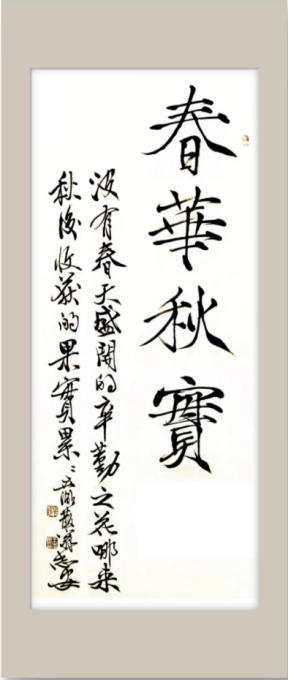 春華秋實
没有春天盛開的辛勤之花哪来
秋後收获的果實累〻